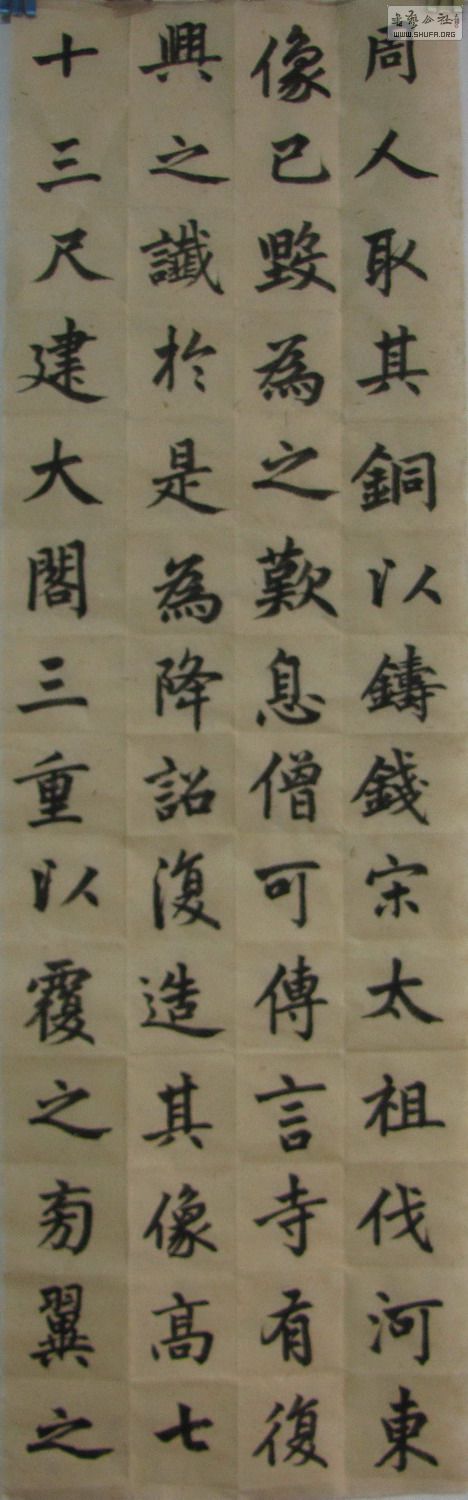 周人取其銅以鑄錢宋太祖伐河東
像已毀為之歎息僧可傳言寺有復
興之讖於是為降詔復造其像高七
十三尺建大閣三重以覆之旁翼之
WWW.SHUFA.ORG